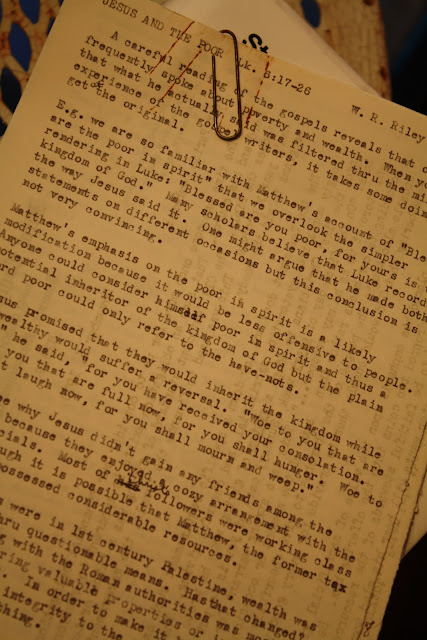 JESUS AND THE POOR Lk. W. R. Riley
A careful reading of the gospels reveals that
frequently spoke about poverty and wealth. When yo
that what he actually said was filtered thru the mi
experience of the gospel writers, it takes some doin
get to the original.
E.g. we are so familiar with Matthew's account of "Ble
are the poor in spirit" that we overlook the simpler
rendering in Luke: "Blessed are you poor, for yours is
kingdom of God." Many scholars believe that Luke record
the way Jesus said it. One might argue that he made both
statements on different occasions but this conclusion is
not very convincing.
Matthew's emphasis on the poor in spirit is a likely
modification because it would be less offensive to people.
Anyone could consider himself poor in spirit and thus a
potential inheritor of the kingdom of God but the plain
rd poor could only refer to the have-nots.
sus promised that they would inherit the kingdom while
wealthy would suffer a reversal. "Woe to you that are
" he said, "for you have received your consolation.
you that are full now, for you shall hunger. Woe to
t laugh now, for you shall mourn and weep."
e why Jesus didn't gain any friends among the
because they enjoyed a cozy arrangement with the
cials. Most of his followers were working class
ugh it is possible that Matthew, the former tax
possessed considerable resources.
s were in 1st century Palestine, wealth was
hru questionable means. Has that changed?
g with the Roman authorities was
ring valuable properties or
. In order to make it
integrity to the
thing.